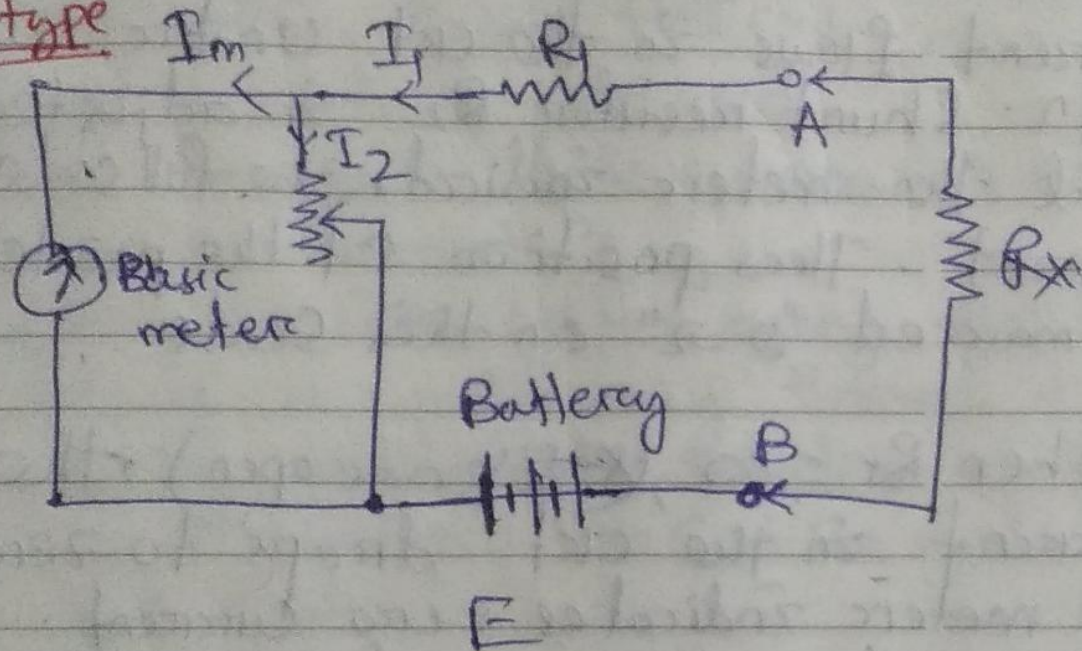 type
Im I1 R1
A
I2
Rx
Basic
meter
Battery
B
E